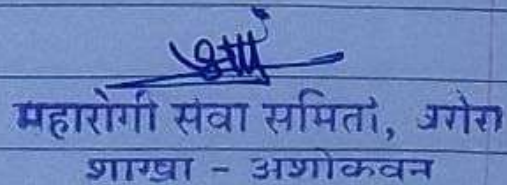 महारोगी सेवा समिती, वरोरा
शाखा - अशोकवन